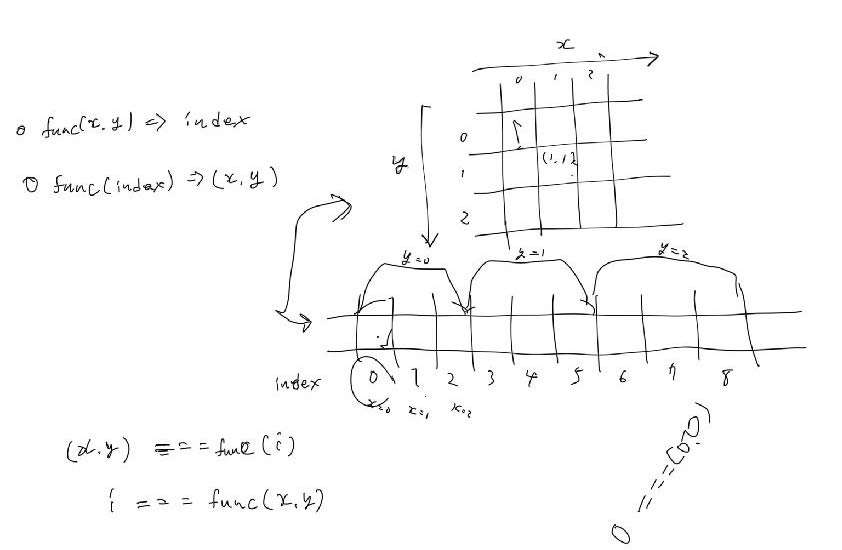 x
0 1 2
o func(x.y) => index
0
y
(1.1)
1
o func(index) => (x,y)
2
y=0 y=1 y=2
index 0 1 2 3 4 5 6 7 8
x=0 x=1 x=2
(x.y) === func(i)
i === func(x,y)
0 ==== (0.0)